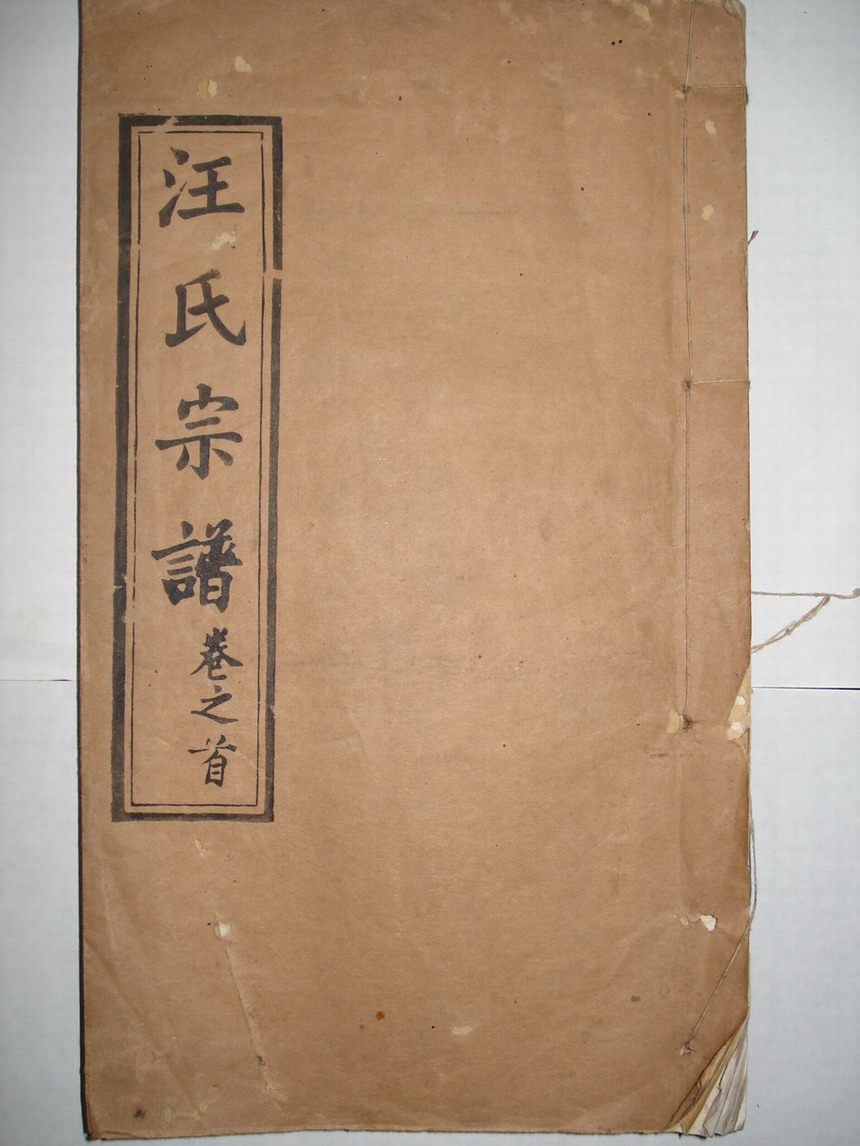 汪氏宗譜卷之首